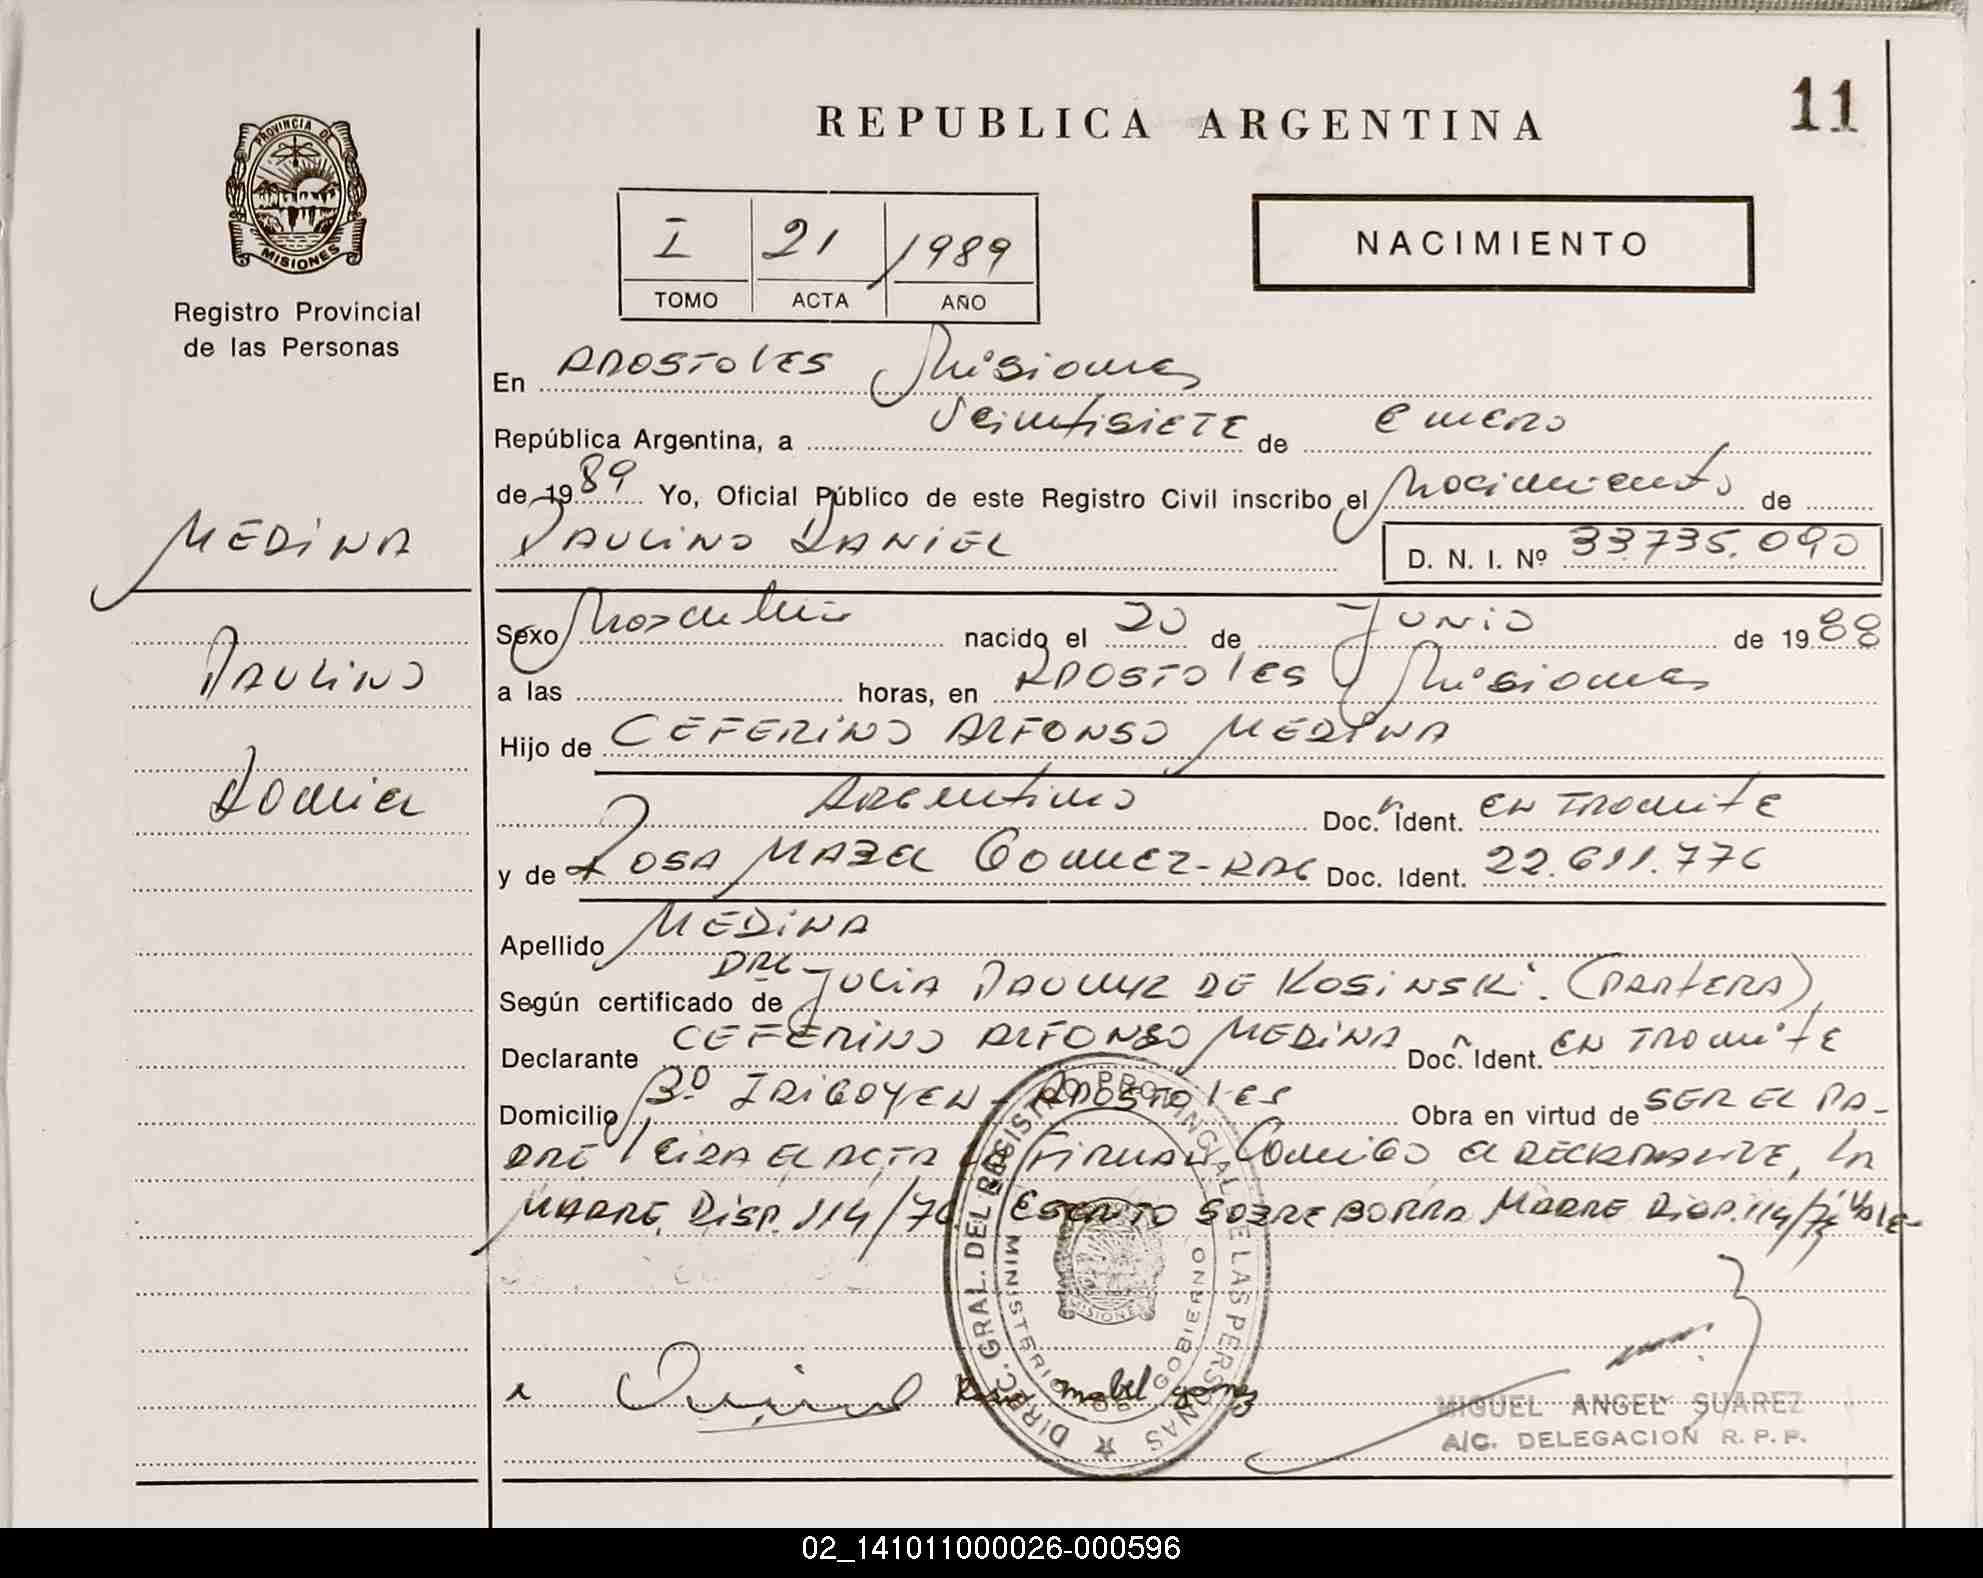 PROVINCIA DE
MISIONES
Registro Provincial
de las Personas
MEDINA
PAULINO
DANIEL
REPUBLICA ARGENTINA
11
I 21 1989
TOMO ACTA AÑO
NACIMIENTO
En APOSTOLES Misiones
República Argentina, a Veintisiete de enero
de 1989 Yo, Oficial Público de este Registro Civil inscribo el Nacimiento de
PAULINO DANIEL
D. N. I. Nº 33.735.090
Sexo Masculino nacido el 20 de Junio de 1988
a las horas, en APOSTOLES Misiones
Hijo de CEFERINO ALFONSO MEDINA
Argentino Doc. Ident. EN TRAMITE
y de ROSA MABEL GOMEZ - ARG Doc. Ident. 22.611.776
Apellido MEDINA
Según certificado de JULIA DE KOSINSKI. (PARTERA)
Declarante CEFERINO ALFONSO MEDINA Doc. Ident. EN TRAMITE
Domicilio Bº IRIGOYEN - APOSTOLES Obra en virtud de SER EL PA-
DRE LEIDA EL ACTA LA FIRMAN Conmigo El DECLARANTE, LA
MADRE, DISP. 114/76 ESCRITO SOBRE BORRA MADRE DISP. 114/76 VALE-
DIREC. GRAL. DEL REGISTRO PROVINCIAL DE LAS PERSONAS
MINISTERIO DE GOBIERNO
MISIONES
Rosa mabel gomez
MIGUEL ANGEL SUAREZ
A/C. DELEGACION R. P. P.
02_141011000026-000596